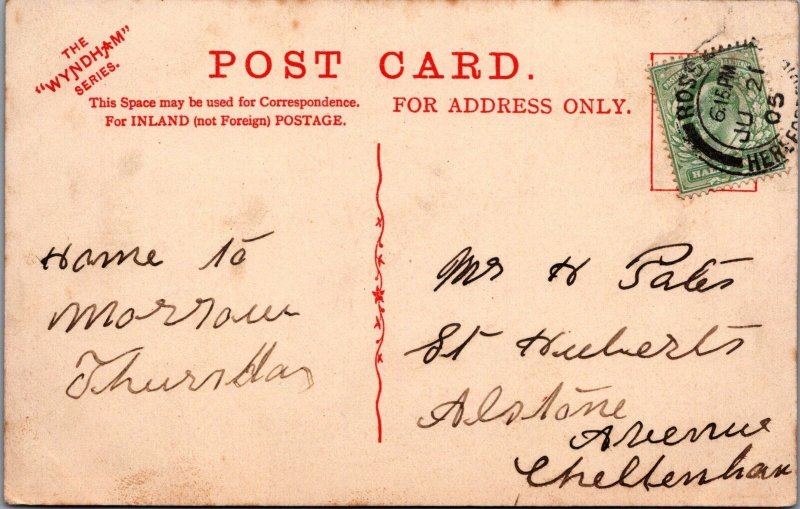 THE
"WYNDHAM"
SERIES.
POST CARD.
This Space may be used for Correspondence.
For INLAND (not Foreign) POSTAGE.
FOR ADDRESS ONLY.
ROSS
6.15 PM
JU 21
05
HEREFORD
Home to
Morrow
Thursday
Mr H Pates
St Huberts
Alstone
Avenue
Cheltenham